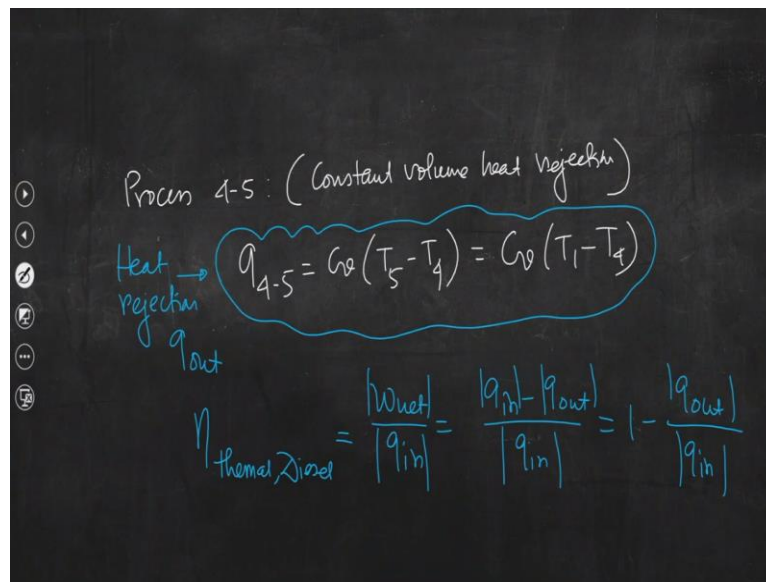 Process 4-5 : (Constant volume heat rejection)
Heat rejection → q₄₋₅ = Cv(T₅-T₄) = Cv(T₁-T₄)
qout
ηthermal,Diesel = |wnet|/|qin| = (|qin|-|qout|)/|qin| = 1 - |qout|/|qin|